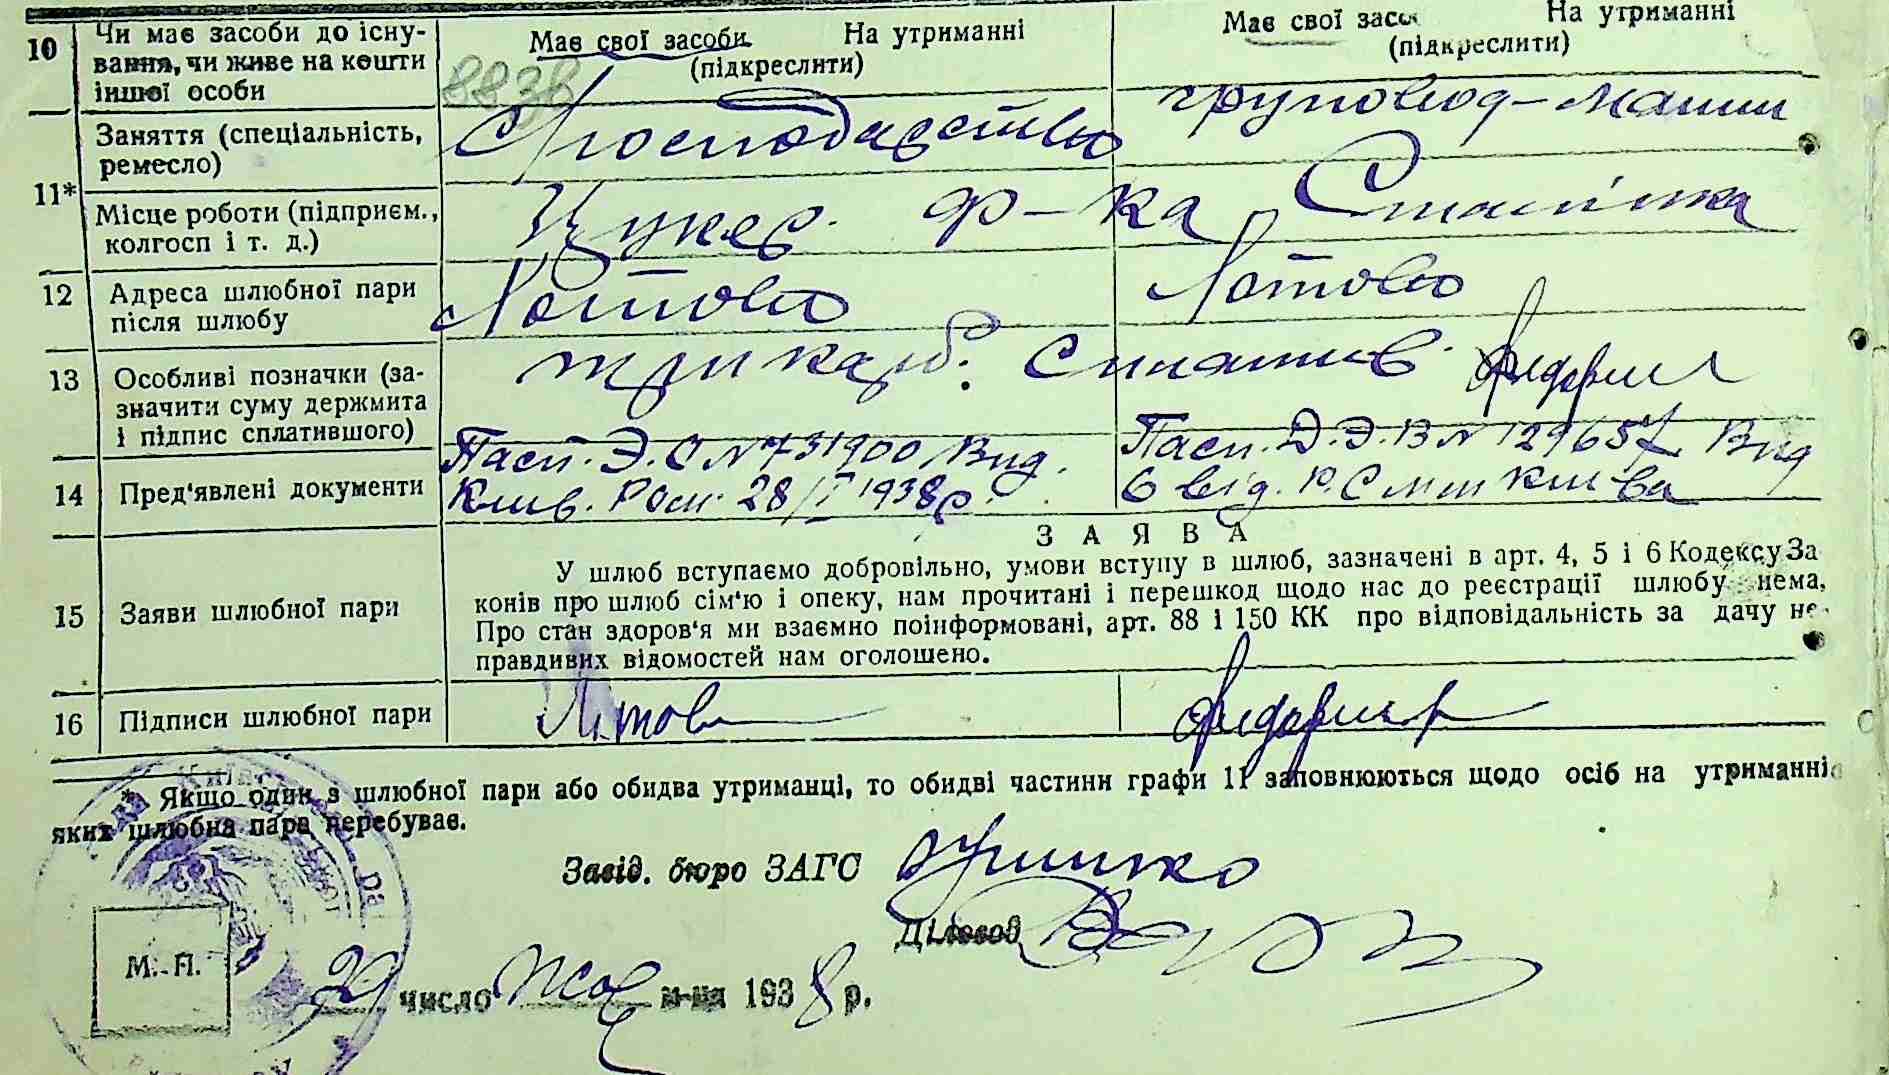 10 Чи має засоби до існу-
вання, чи живе на кошти
іншої особи
Має свої засоби На утриманні
(підкреслити)
Має свої засо На утриманні
(підкреслити)
8838
11* Заняття (спеціальність,
ремесло)
Господарство
груповод-
Місце роботи (підприєм.,
колгосп і т. д.)
Цукер. ф-ка
12 Адреса шлюбної пари
після шлюбу
13 Особливі позначки (за-
значити суму держмита
і підпис сплатившого)
три карб.
14 Пред'явлені документи
Пасп. Э. О № 731900 Вид.
Київ. 28/I 1938 р.
Пасп. Д. Э. В № 129657 Вид
6 від. Р. С Києва
15 Заяви шлюбної пари
ЗАЯВА
У шлюб вступаємо добровільно, умови вступу в шлюб, зазначені в арт. 4, 5 і 6 Кодексу За
конів про шлюб сім'ю і опеку, нам прочитані і перешкод щодо нас до реєстрації шлюбу нема,
Про стан здоров'я ми взаємно поінформовані, арт. 88 і 150 КК про відповідальність за дачу не-
правдивих відомостей нам оголошено.
16 Підписи шлюбної пари
* Якщо один з шлюбної пари або обидва утриманці, то обидві частини графи 11 заповнюються щодо осіб на утриманні
яких шлюбна пара перебуває.
Завід. бюро ЗАГС
Діловод
М. П.
29 число м-ця 1938 р.